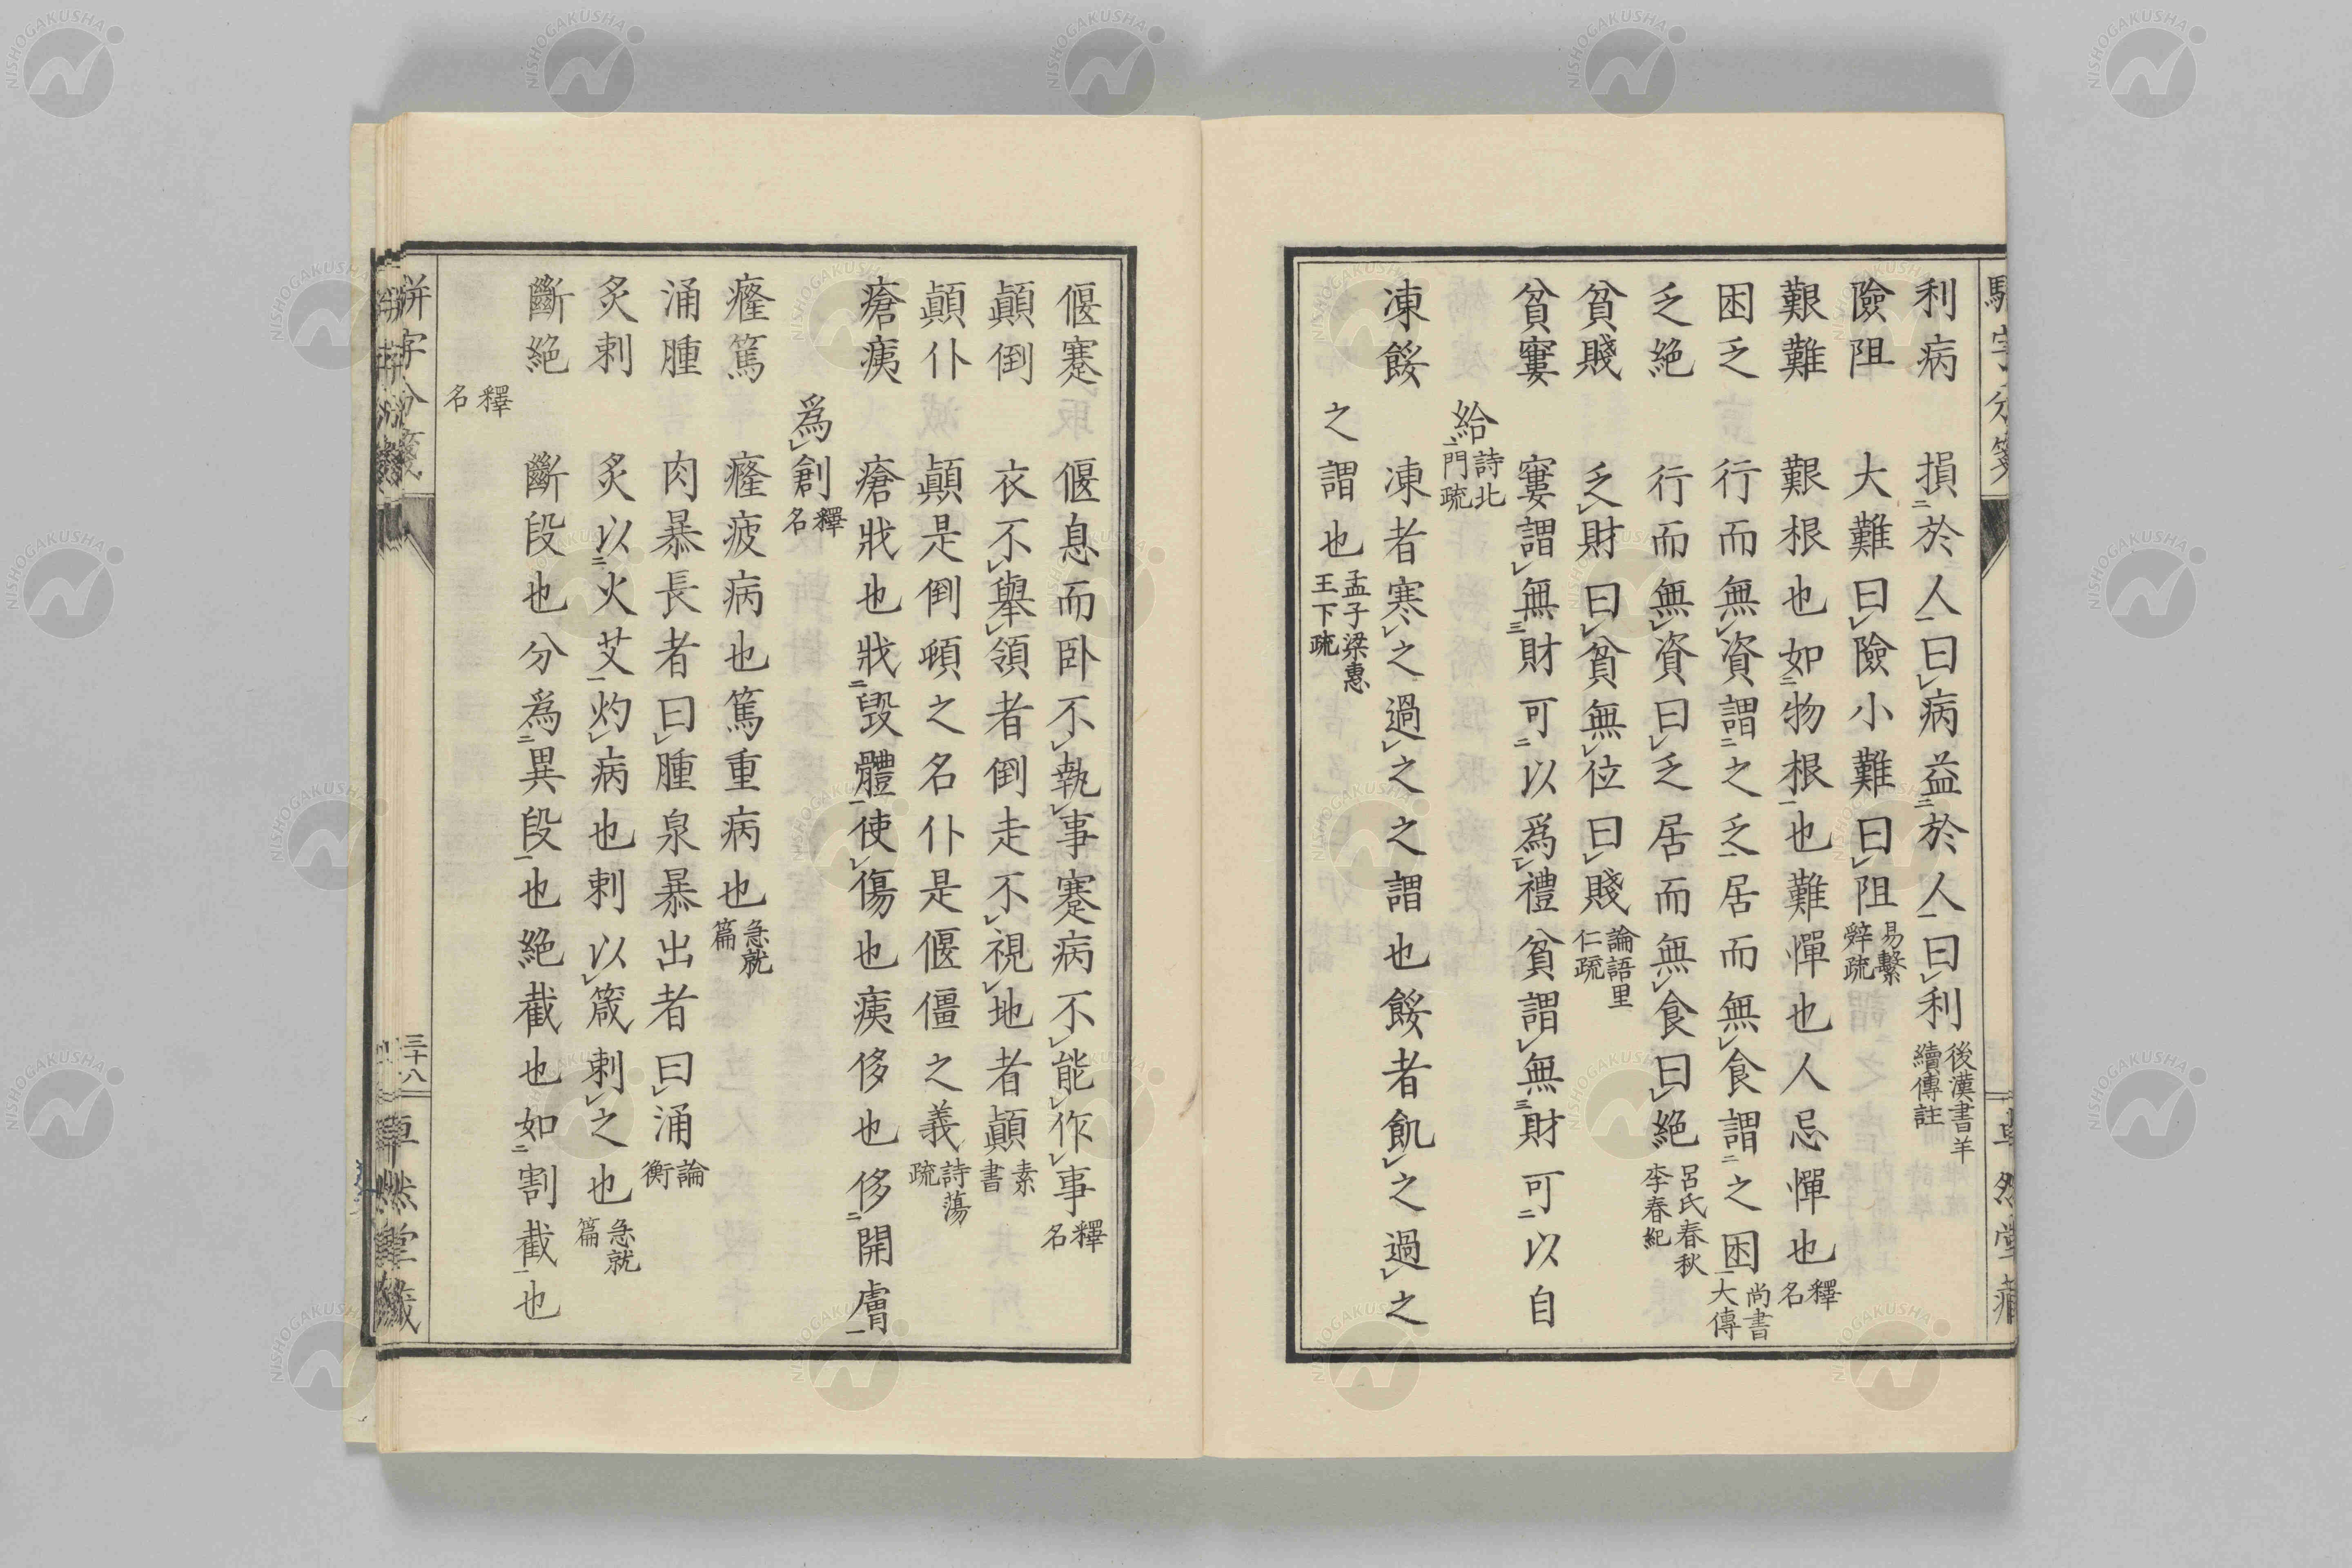 利病　損二於人一曰レ病益二於人一曰レ利 後漢書羊續傳註
險阻　大難曰レ險小難曰レ阻 易繫辭疏
艱難　艱根也如二物根一也難憚也人忌憚也 釋名
困乏　行而無レ資謂二之乏一居而無レ食謂二之困一 尚書大傳
乏絕　行而無レ資曰レ乏居而無レ食曰レ絕 呂氏春秋季春紀
貧賤　乏レ財曰レ貧無レ位曰レ賤 論語里仁疏
貧窶　窶謂レ無三財可二以爲レ禮貧謂レ無三財可二以自
給一 詩北門疏
凍餒　凍者寒レ之過レ之之謂也餒者飢レ之過レ之
之謂也 孟子梁惠王下疏
偃蹇　偃息而卧不レ執レ事蹇病不レ能レ作レ事 釋名
顛倒　衣不レ擧レ領者倒走不レ視レ地者顛 素書
顛仆　顛是倒頓之名仆是偃僵之義 詩蕩疏
瘡痍　瘡戕也戕二毀體一使レ傷也痍侈也侈二開膚一
爲レ創 釋名
癃篤　癃疲病也篤重病也 急就篇
涌腫　肉暴長者曰レ腫泉暴出者曰レ涌 論衡
炙刺　炙以二火艾一灼レ病也刺以レ箴刺レ之也 急就篇
斷絕　斷段也分爲二異段一也絕截也如二割截一也
釋名
騈字分箋
三十八